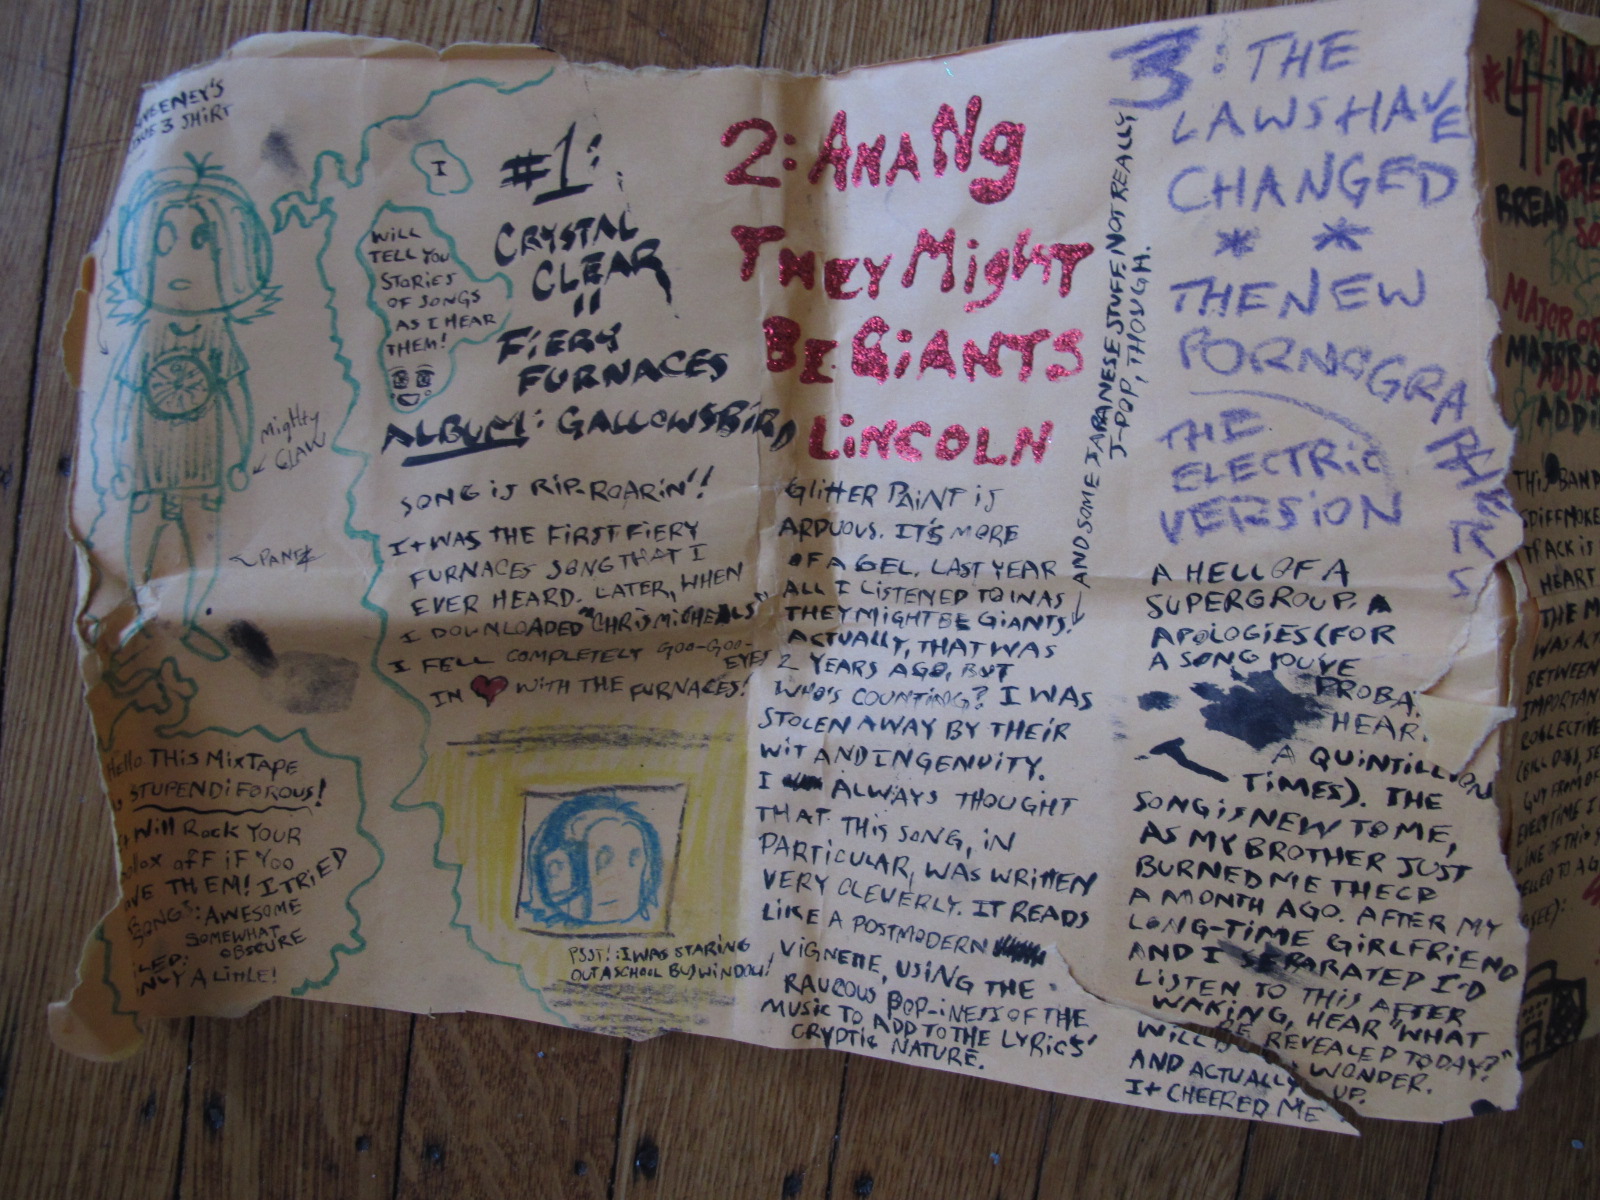 SHIRT
Mighty
CLAW
PANTS
Hello THIS MIXTAPE
STUPENDIFOROUS!
Will Rock YOUR
OFF IF YOU
THEM! I TRIED
SONGS: AWESOME
SOMEWHAT
OBSCURE
A LITTLE!
I
WILL
TELL YOU
STORIES
OF SONGS
AS I HEAR
THEM!
#1:
CRYSTAL
CLEAR
FIERY
FURNACES
ALBUM: GALLOWSBIRD
SONG IS RIP-ROARIN'!
IT WAS THE FIRST FIERY
FURNACES SONG THAT I
EVER HEARD. LATER, WHEN
I DOWNLOADED "CHRIS MICHEALS"
I FELL COMPLETELY GOO-GOO-
EYES
IN ♥ WITH THE FURNACES!
PSST!: I WAS STARING
OUT A SCHOOL BUS WINDOW!
2: ANA NG
THEY MIGHT
BE GIANTS
LINCOLN
GLITTER PAINT IS
ARDUOUS. IT'S MORE
OF A GEL. LAST YEAR
ALL I LISTENED TO WAS
THEY MIGHT BE GIANTS.
ACTUALLY, THAT WAS
2 YEARS AGO, BUT
WHO'S COUNTING? I WAS
STOLEN AWAY BY THEIR
WIT AND INGENUITY.
I ALWAYS THOUGHT
THAT THIS SONG, IN
PARTICULAR, WAS WRITTEN
VERY CLEVERLY. IT READS
LIKE A POSTMODERN
VIGNETTE, USING THE
RAUCOUS POP-INESS OF THE
MUSIC TO ADD TO THE LYRICS'
CRYPTIC NATURE.
AND SOME JAPANESE STUFF. NOT REALLY
J-POP, THOUGH.
3: THE
LAWS HAVE
CHANGED
* *
THE NEW
PORNOGRAPHERS
THE
ELECTRIC
VERSION
A HELL OF A
SUPERGROUP.
APOLOGIES (FOR
A SONG YOU'VE
PROBA.
HEAR.
A QUINTILLION
TIMES). THE
SONG IS NEW TO ME,
AS MY BROTHER JUST
BURNED ME THE CD
A MONTH AGO. AFTER MY
LONG-TIME GIRLFRIEND
AND I SEPARATED I'D
LISTEN TO THIS AFTER
WAKING, HEAR "WHAT
WILL BE REVEALED TODAY?"
AND ACTUALLY WONDER.
IT CHEERED ME UP.
*4
ON
BREAD
MAJOR OR
MAJOR
ADDI
THIS BAND
TRACK IS
HEART.
THE M
WAS ACT
BETWEEN
IMPORTAN
COLLECTIVE
GUY FROM
EVERYTIME I
LINE OF THIS